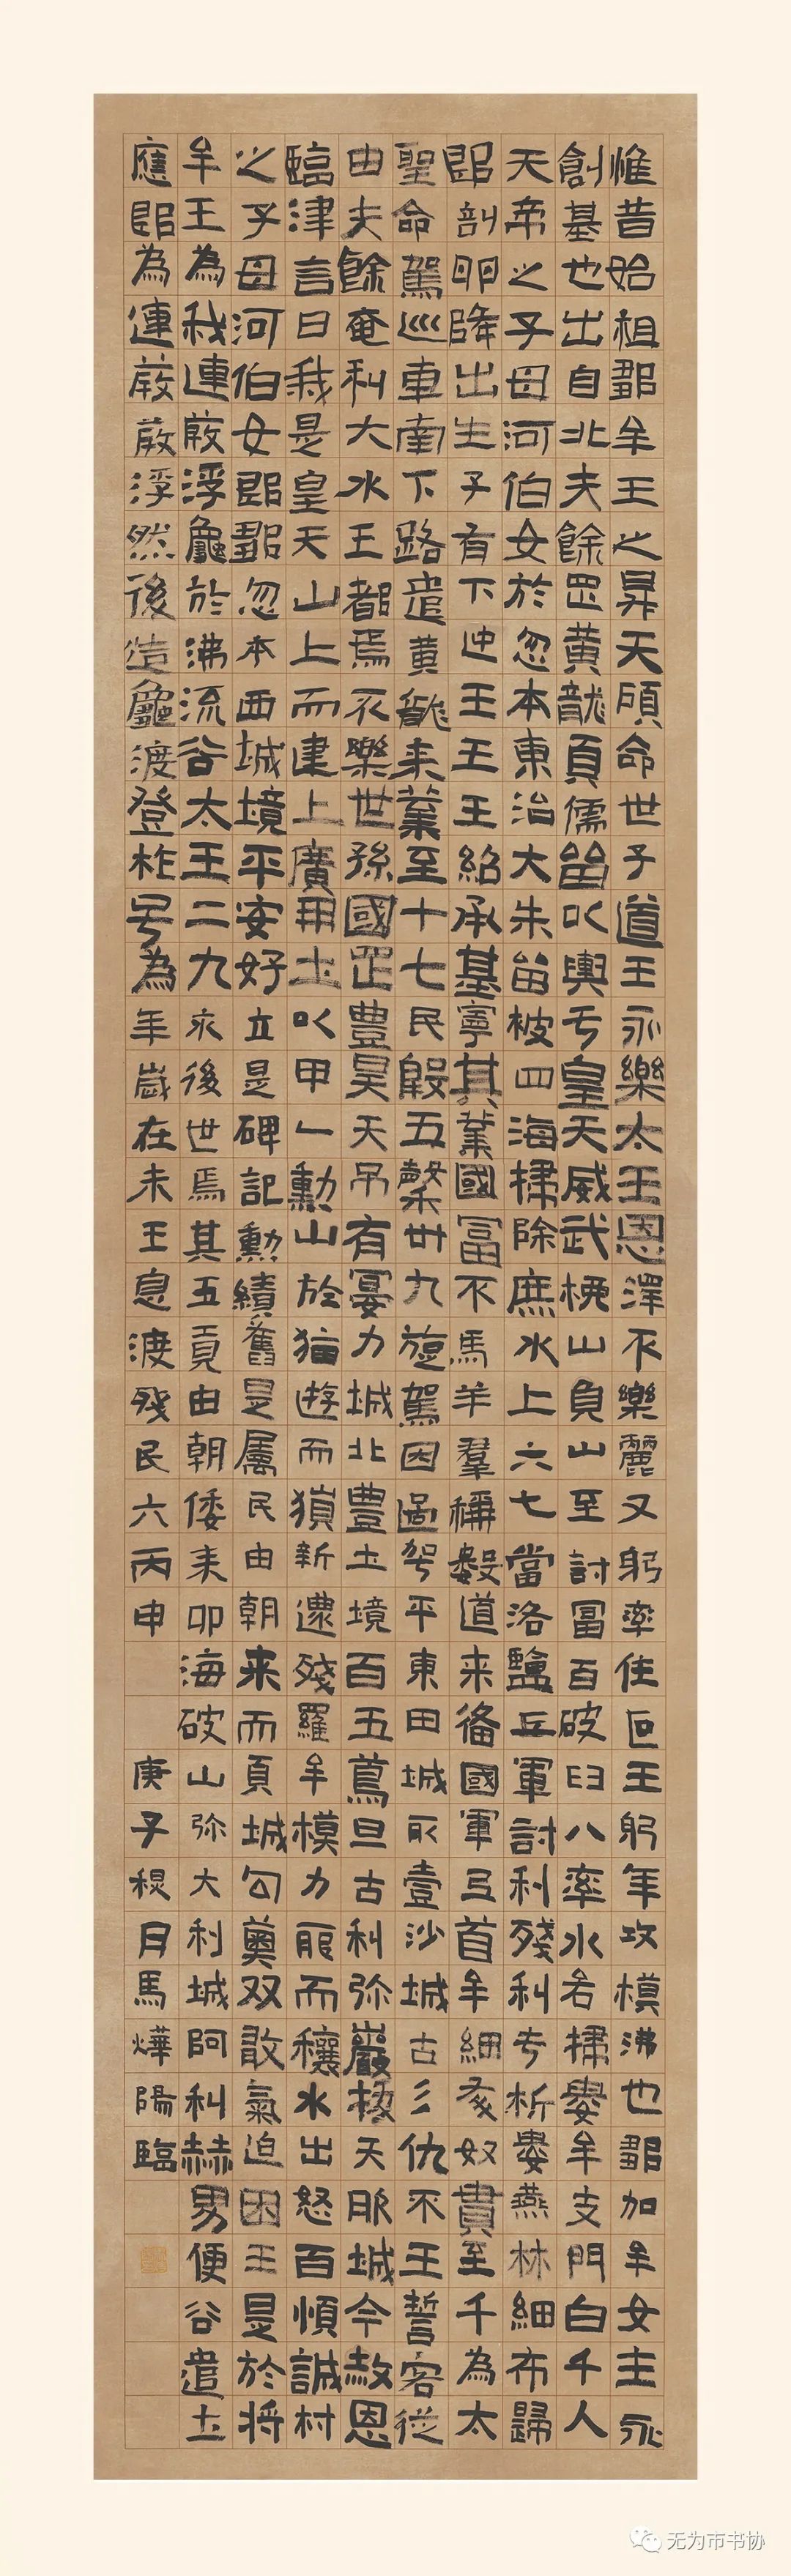 惟昔始祖鄒牟王之昇天頋命世子道王永樂太王恩澤不樂麗又躬率住叵王躬年攻模沸也鄒加牟女主永
創基也出自北夫餘罡黃龍頁儒畱以輿亐皇天威武山負山至討冨百破臼八率水名掃婁牟支門白千人
天帝之子母河伯女於忽本東治大朱畱柀四海掃除庶水上六七當洛鹽丘軍討利殘利析婁燕林細布歸
郎剖明降出生子有下王王王紹承基寧其業國冨不馬羊羣稱數道来俻國軍首牟細奴貴至千為太
聖命駕巡車南下路黃龍来業至十七民殷五卅九旋駕因啚駕平東田城取壹沙城古彡仇不王誓客從
由夫餘奄利大水王都焉不樂世孫國罡豊昊天吊有宴力城北豊土境百五旦古利弥巖拔天郍城今赦恩
臨津言曰我是皇天山上而建上廣用土以甲一勳山於猫遊而獷新遝殘羅牟模力罷而穰水出怒百順誠村
之子母河伯女郎鄒忽本西城境平安好立是碑記勳績舊是属民由朝来而頁城勾奠双敢氣迫困王是於将
牟王為我連葭浮龜於沸流谷太王二九永後世焉其五貢由朝倭来卯海破山弥大利城阿利赫男便谷遣土
應郎為連葭葭浮然後造龜渡登柞号為年歲在未王息渡殘民六丙申
庚子穐月馬燁陽臨
无为市书协